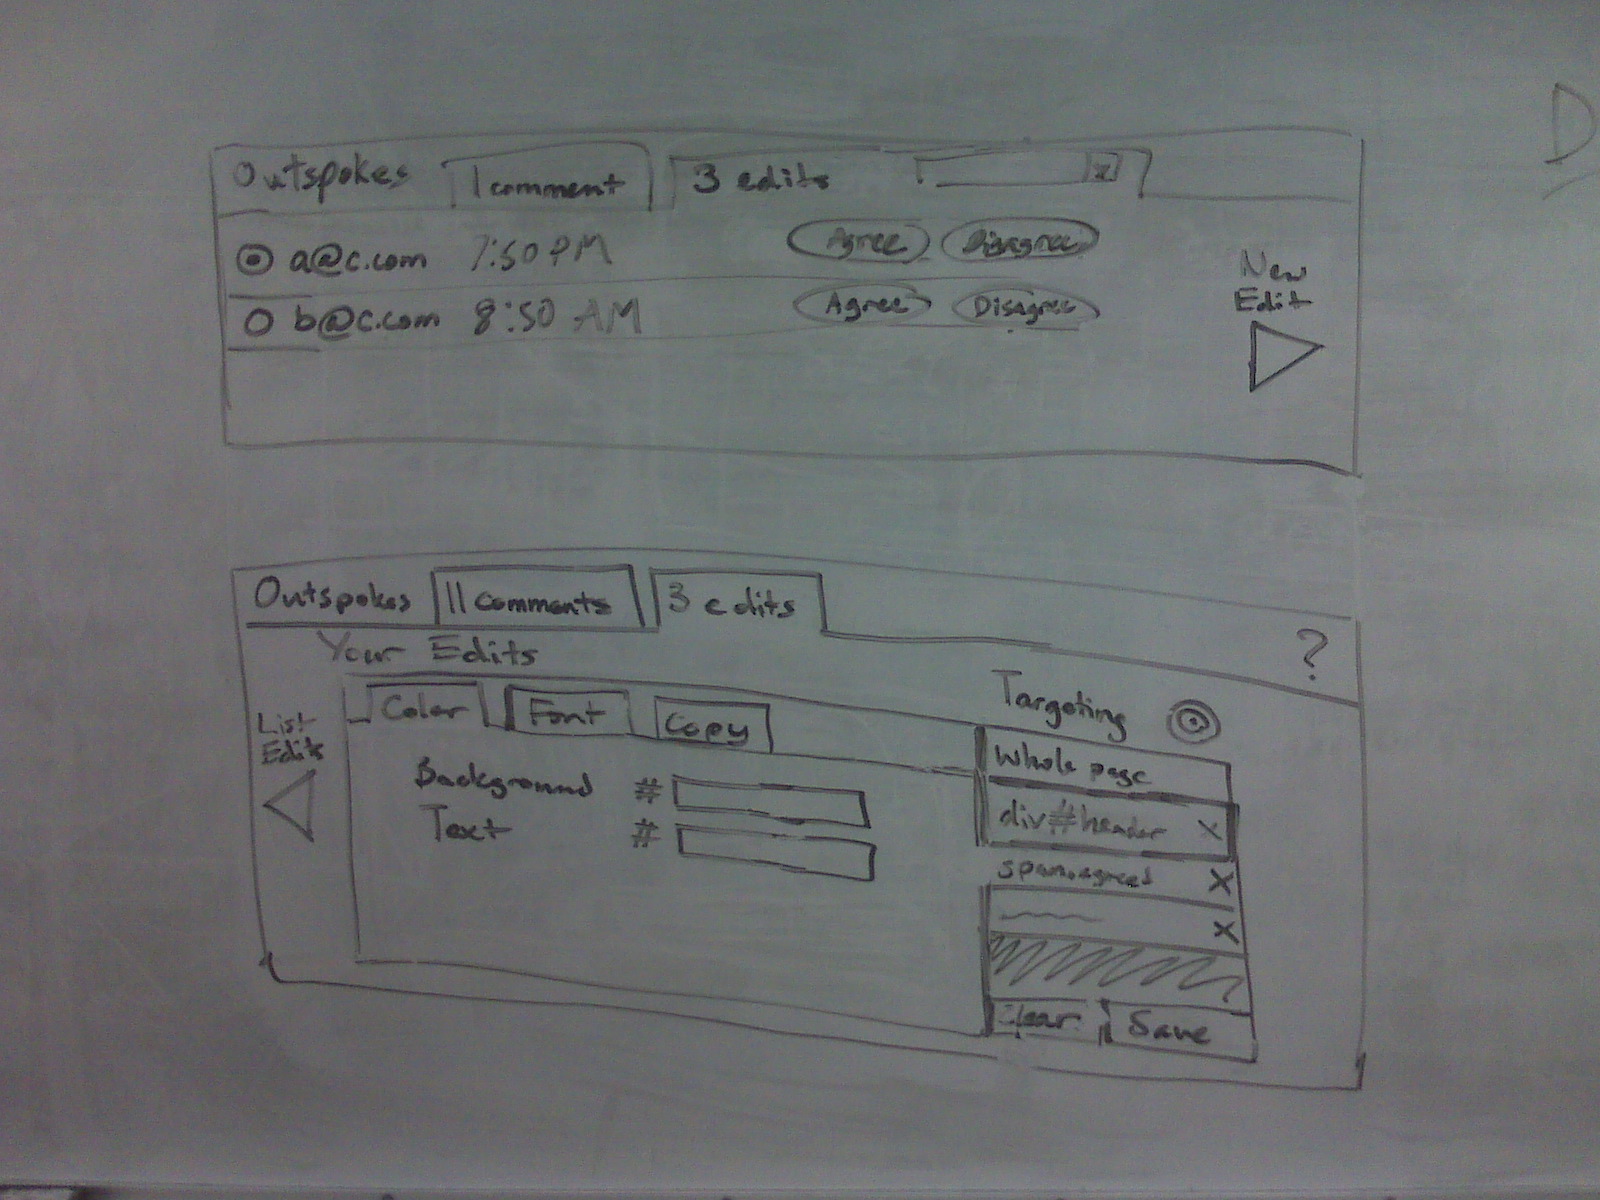 D
Outspokes 1 comment 3 edits x
a@c.com 7:50 PM Agree Disagree
b@c.com 8:50 AM Agree Disagree
New
Edit
Outspokes 11 comments 3 edits
?
Your Edits
List
Edits
Color Font Copy
Background #
Text #
Targeting
Whole page
div#header X
span.agreed X
X
Clear Save